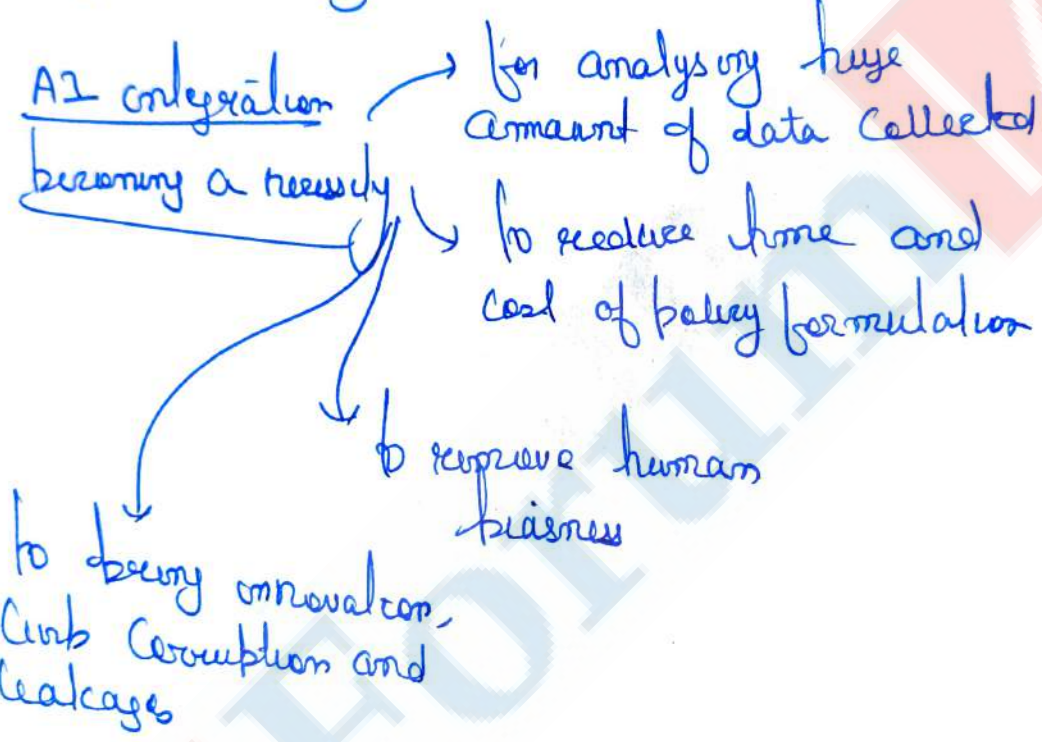 AI integration
becoming a necessity
for analysing huge
amount of data collected
to reduce time and
cost of policy formulation
to remove human
biasness
to bring innovation,
Curb Corruption and
leakages
Forum